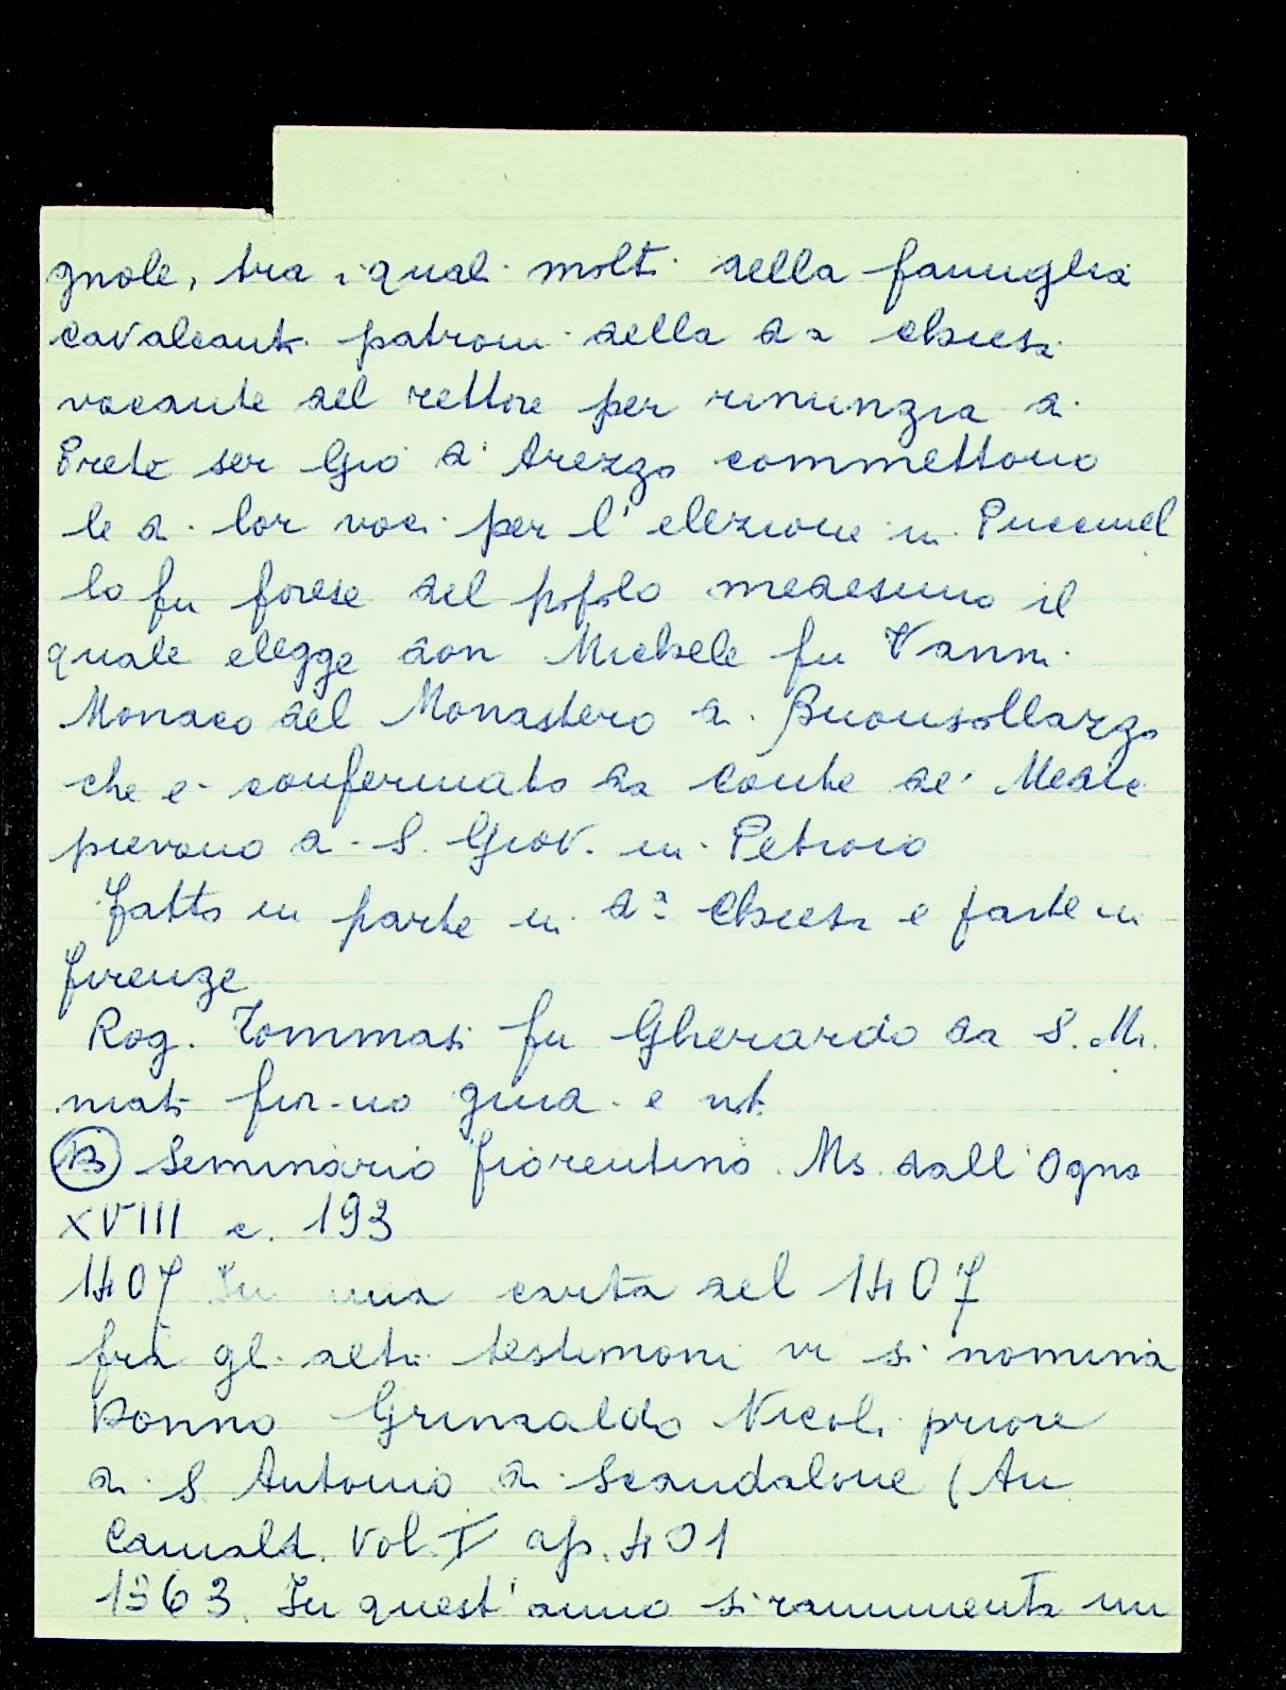 gnole, tra i quali molti della famiglia
Cavalcanti patroni della da Chiesa
vacante del rettore per rinunzia di
Prete ser Gio di Arezzo commettono
le di lor voci per l'elezione in Puccinel
lo fu forese del popolo medesimo il
quale elegge don Michele fu Vanni
Monaco del Monastero di Buonsollazzo
che e confermato da Conte de' Medici
pievano di S. Giov. in Petroio
fatto in parte in da Chiesa e parte in
firenze
Rog. Tommasi fu Gherardo da S. M.
fior-no giud. e not.
B Seminario fiorentino. Ms. dall'Ogna
XVIII c. 193
1407 In una carta del 1407
fra gli altri testimoni vi si nomina
Donno Grimaldo Nicoli priore
di S Antonio di Scandalone (An
Camald. Vol. I ap. 401
1363. In quest'anno si rammenta un